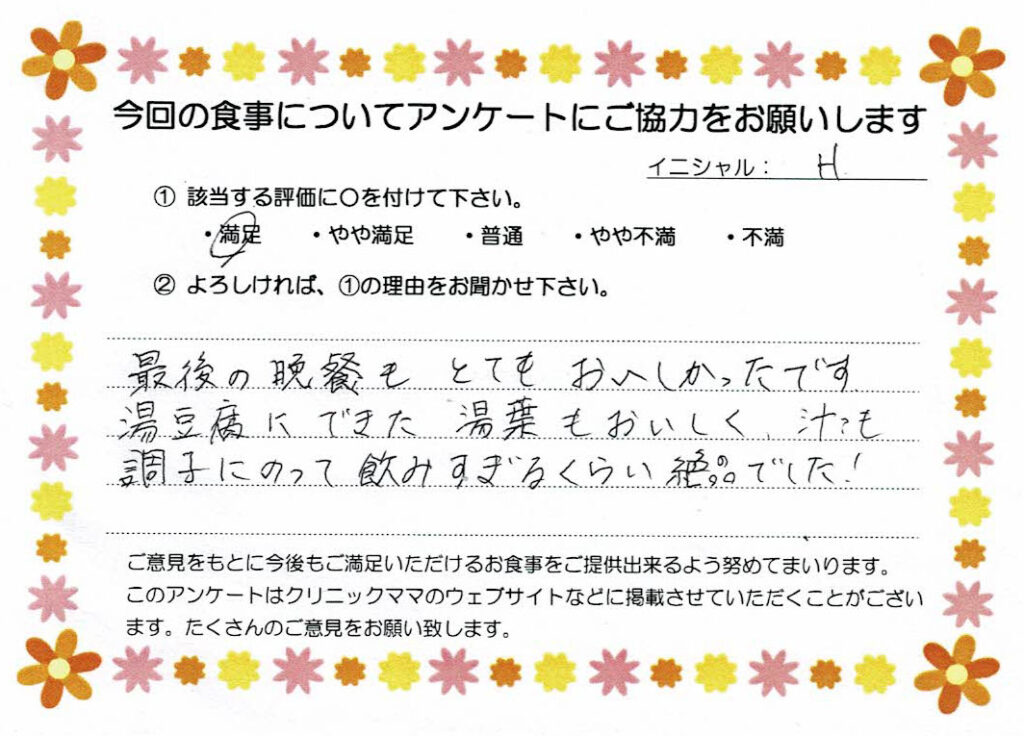 今回の食事についてアンケートにご協力をお願いします
イニシャル： H
① 該当する評価に〇を付けて下さい。
・満足 ・やや満足 ・普通 ・やや不満 ・不満
② よろしければ、①の理由をお聞かせ下さい。
最後の晩餐も とても おいしかったです
湯豆腐に できた 湯葉もおいしく、汁?も
調子にのって 飲みすぎるくらい 絶品でした!
ご意見をもとに今後もご満足いただけるお食事をご提供出来るよう努めてまいります。
このアンケートはクリニックママのウェブサイトなどに掲載させていただくことがござい
ます。たくさんのご意見をお願い致します。